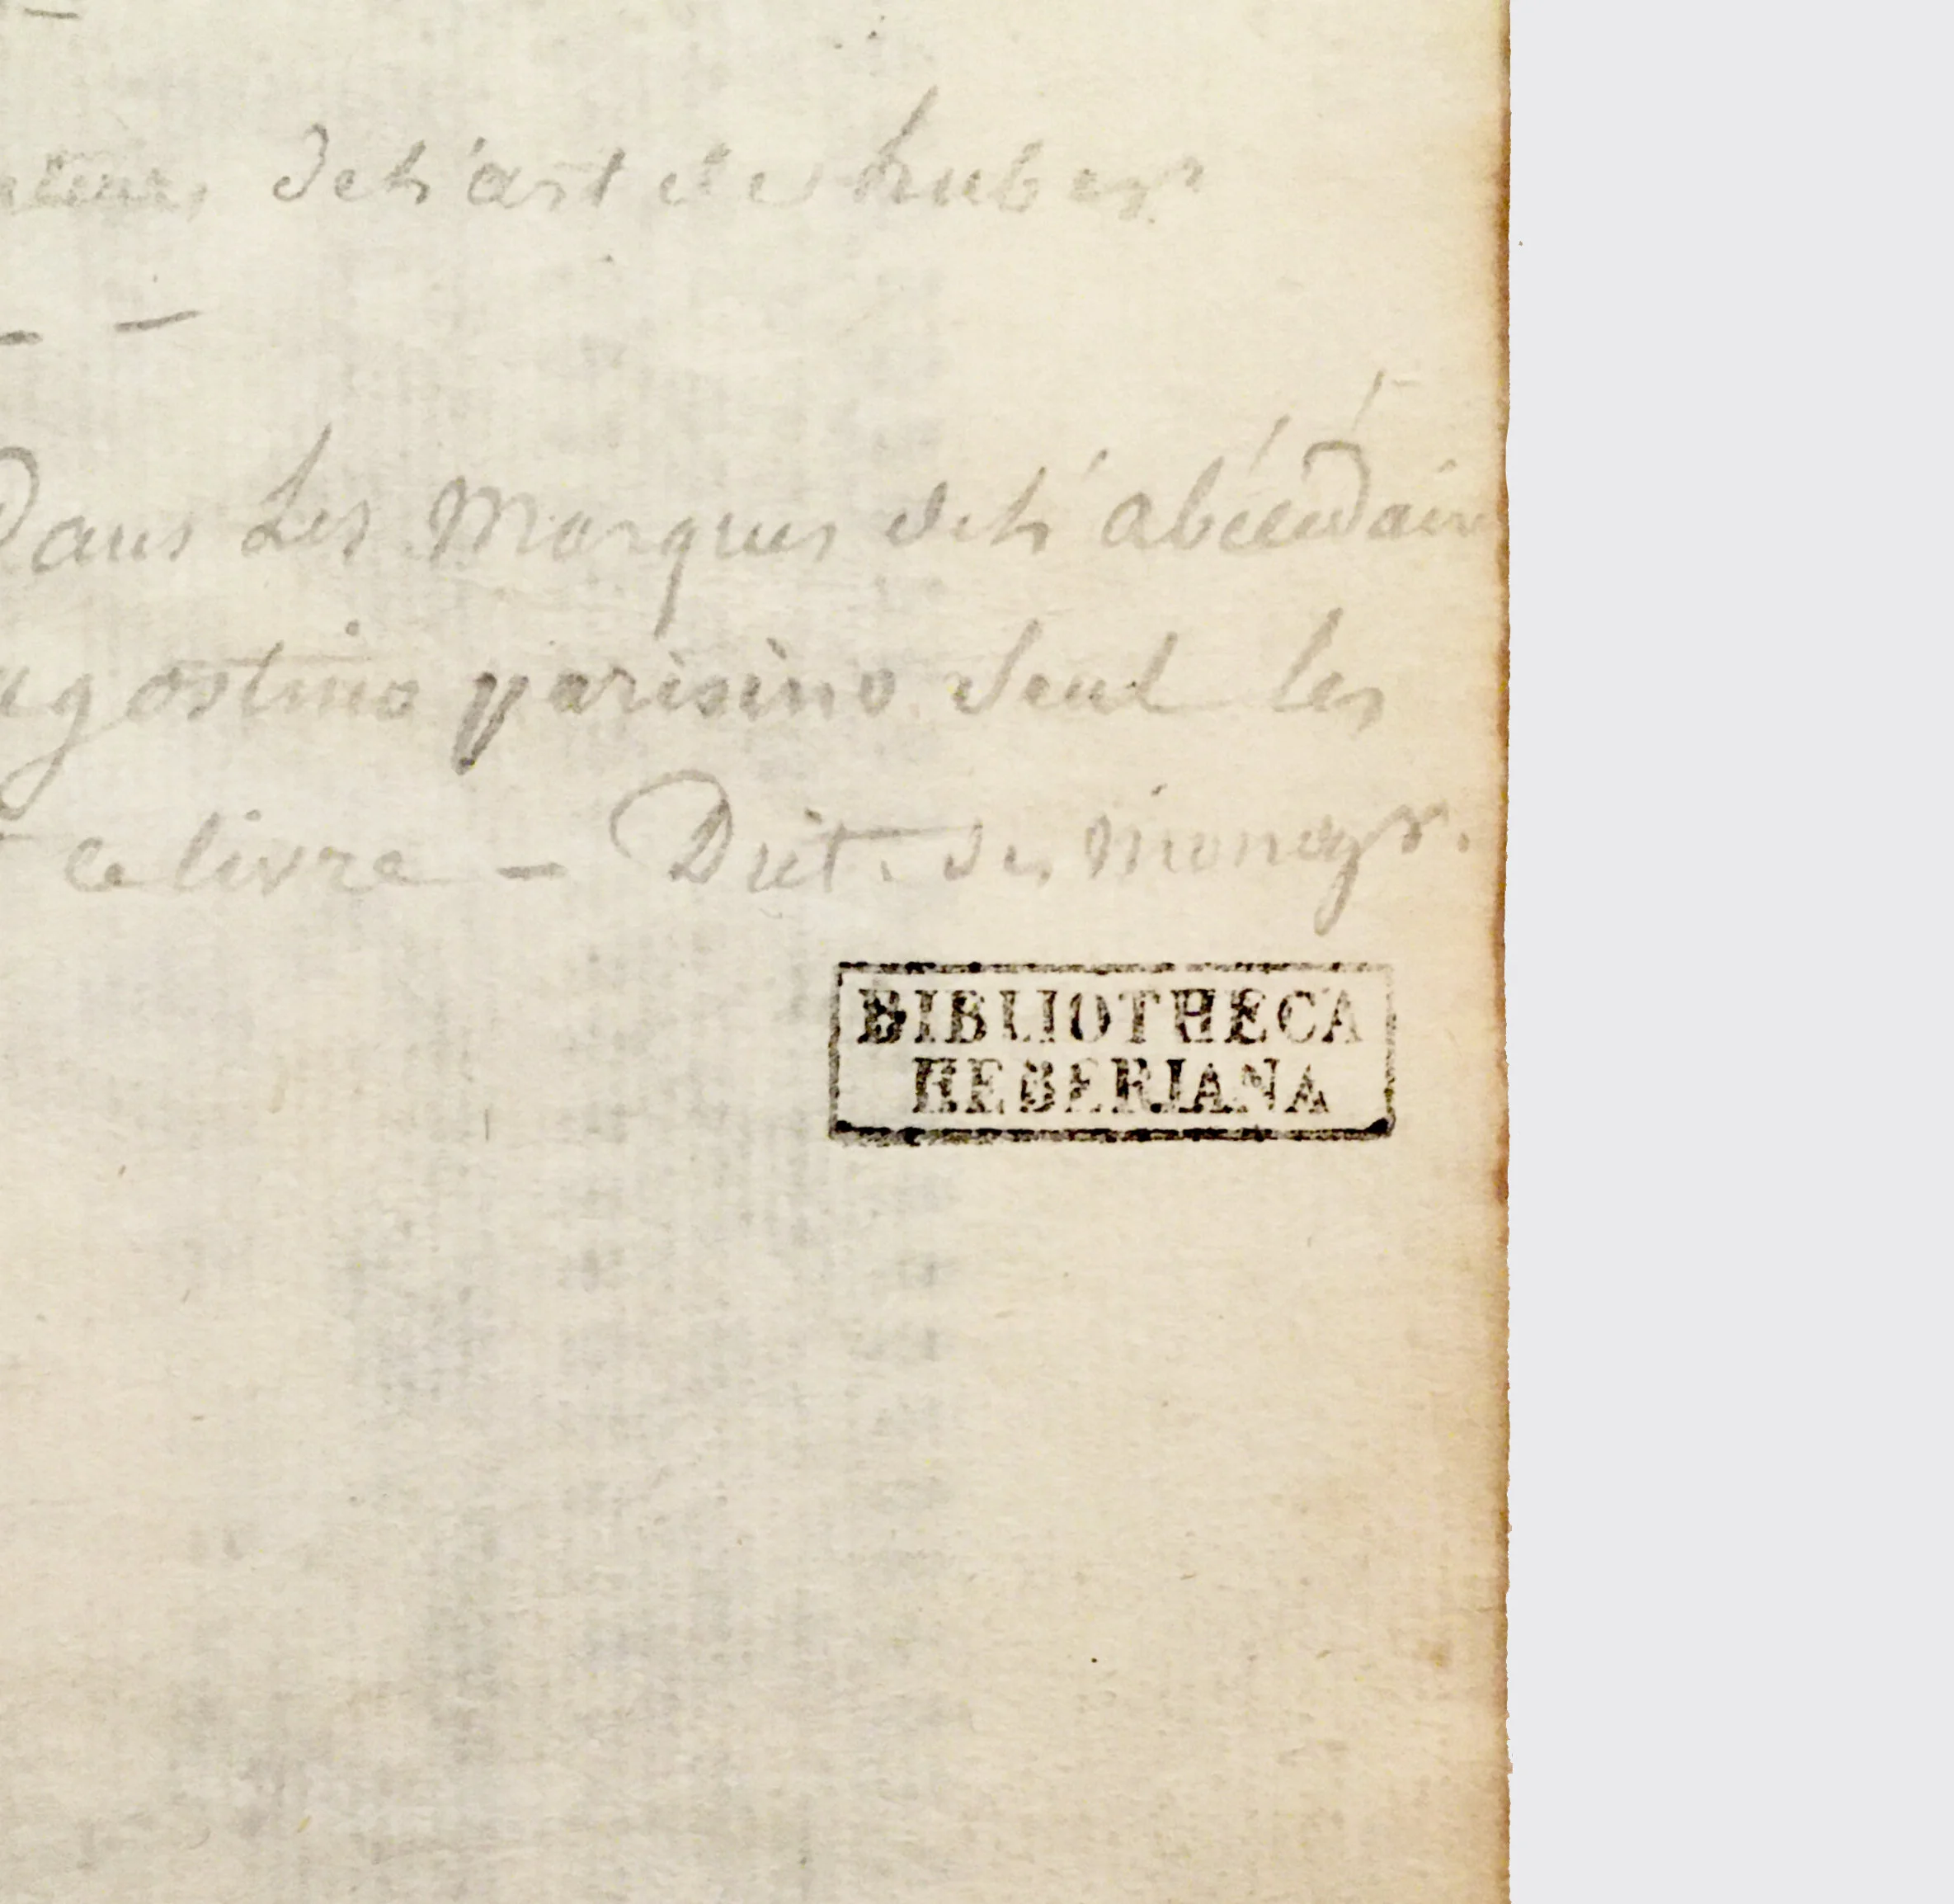 de l'art de huber
Dans Les Marques de l'abécédaire
agostino parisino Seul les
ce livre — Dict. des monogr.
BIBLIOTHECA
HEBERIANA